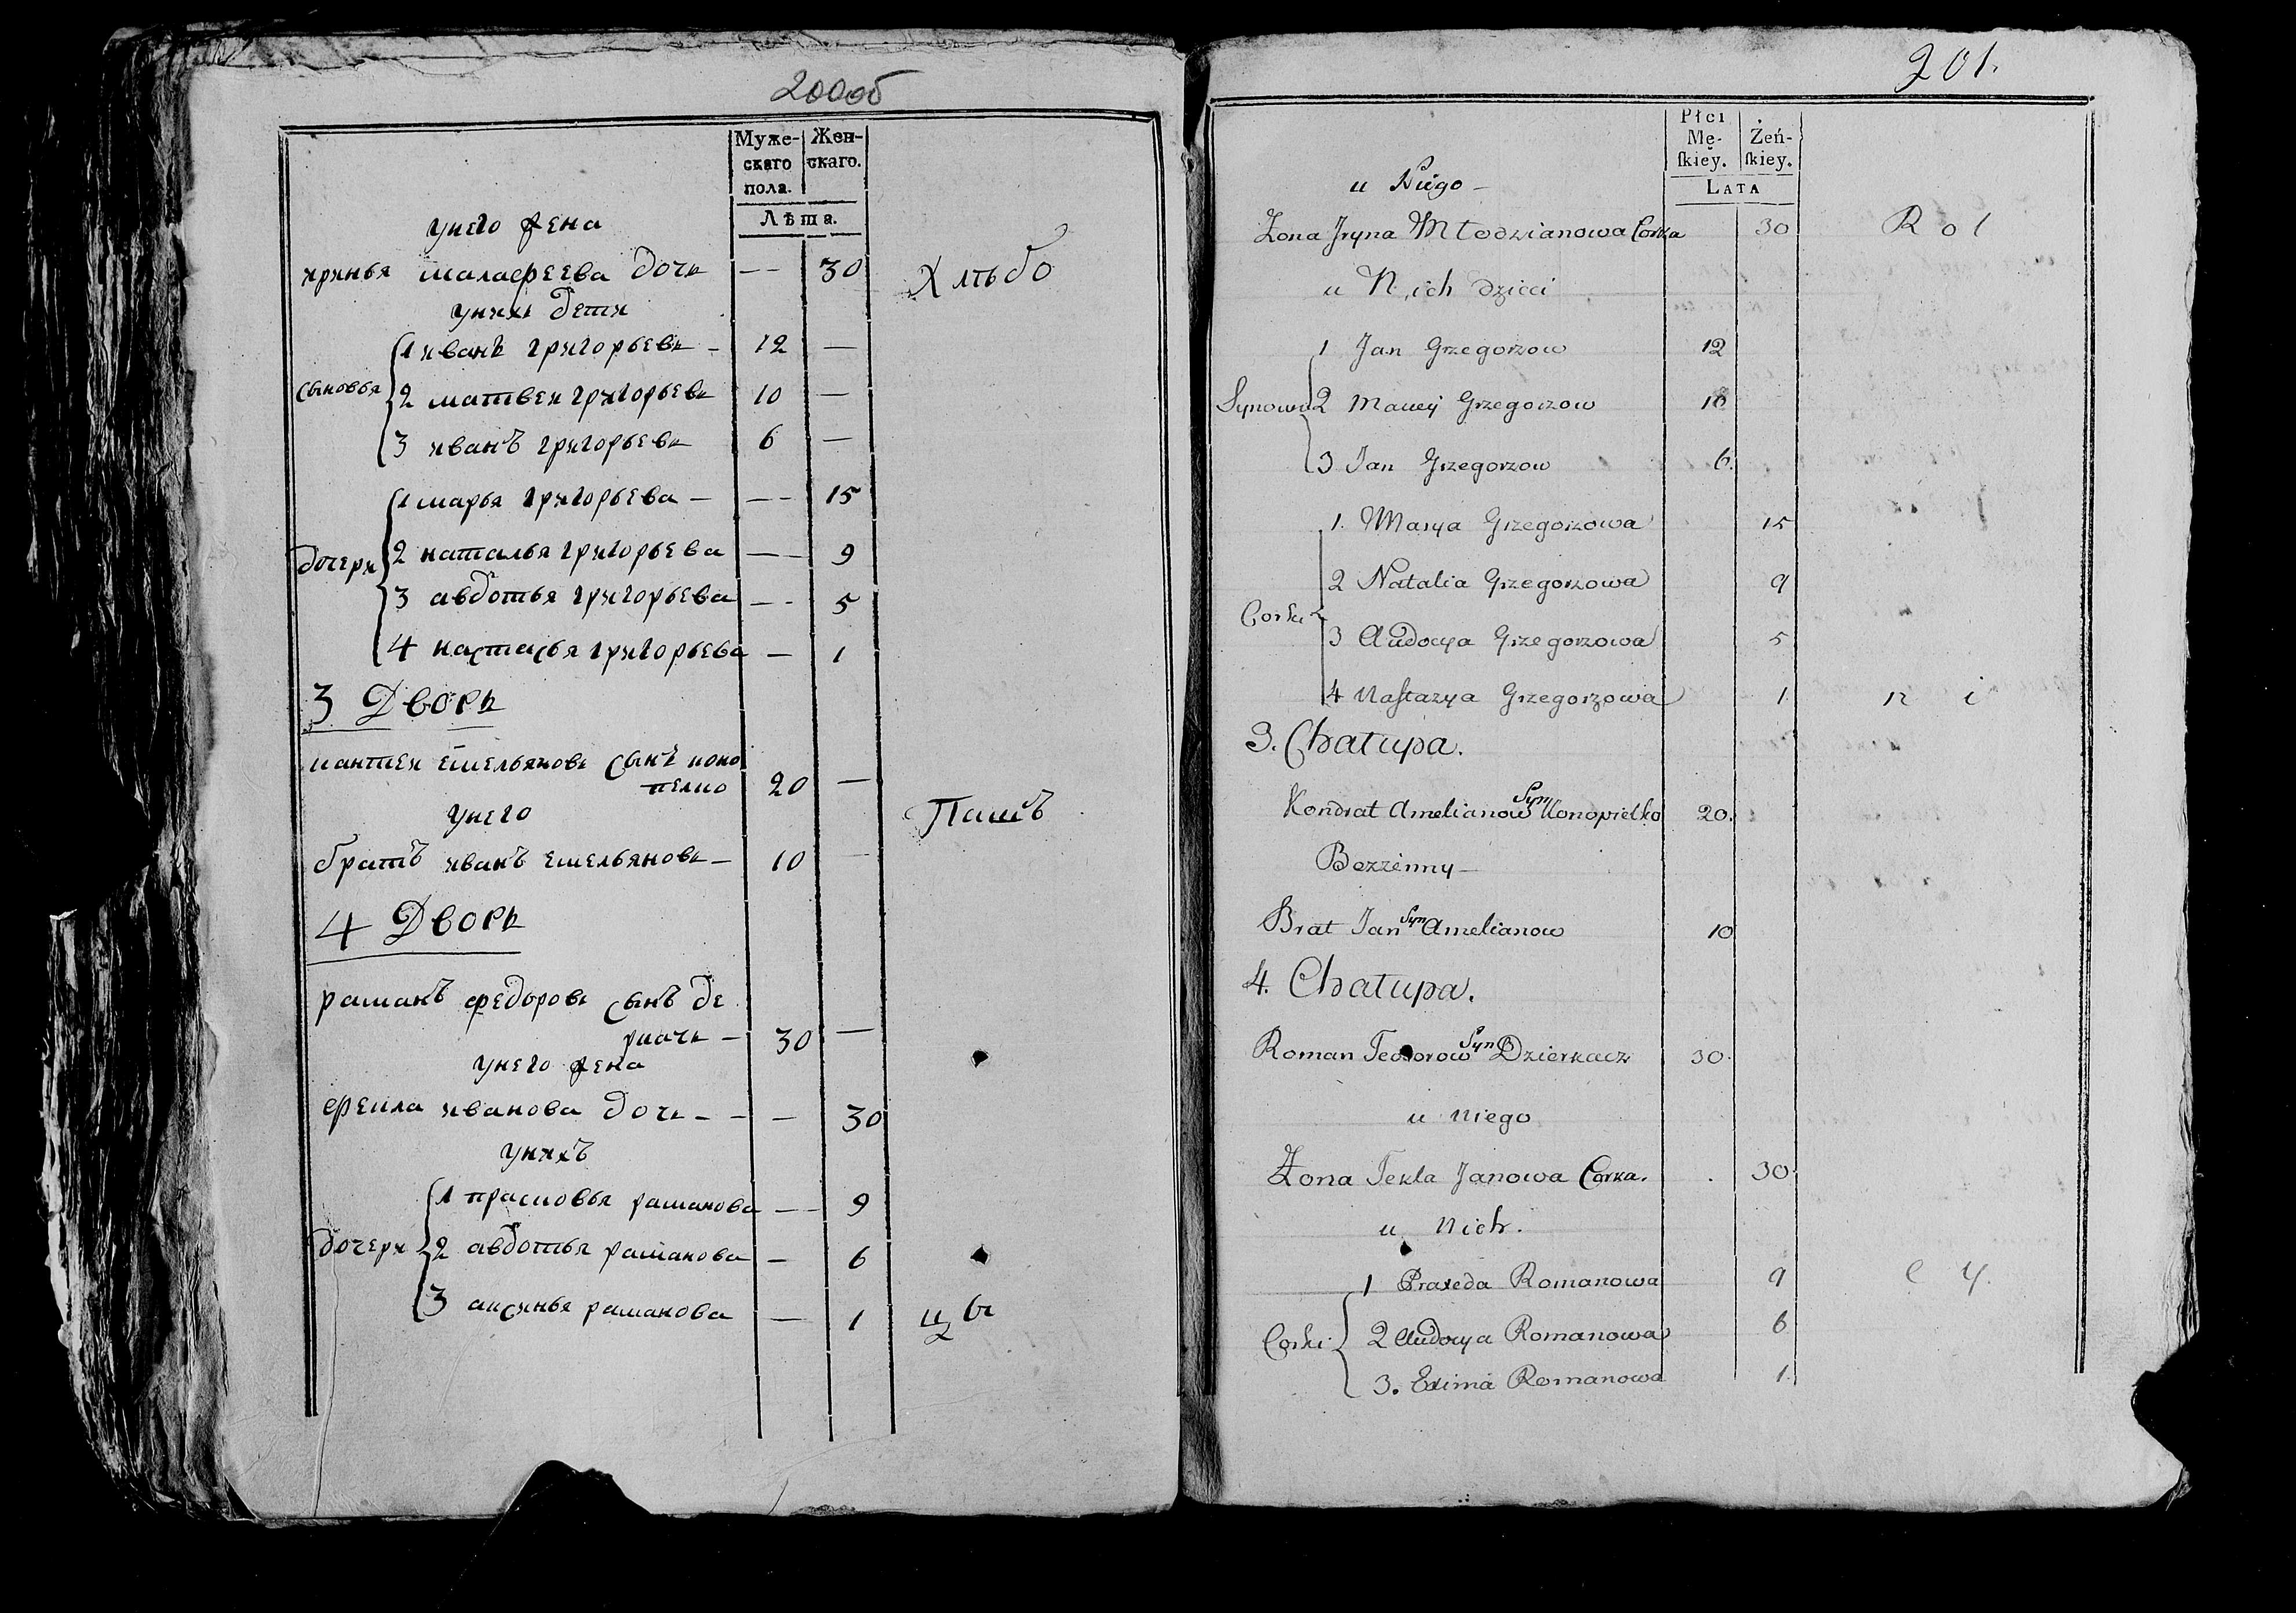 200об
Муже-
скаго
пола.
Жен-
скаго.
Лѣта.
унего жена
иринья малафеева дочь — — 30
Хлѣбо
унихъ дети
сыновья
1 иванъ григорьевъ — 12 —
2 матвеи григорьевъ 10 —
3 иванъ григорьевъ 6 —
дочери
1 марья григорьева — — — 15
2 наталья григорьева — — 9
3 авдотья григорьева — — 5
4 настасья григорьева — 1
3 Дворъ
емельяновъ сынъ коно
пелко 20 —
унего
Пашъ
братъ иванъ емельяновъ — 10 —
4 Дворъ
раманъ федоровъ сынъ де
ркачъ — 30 —
унего жена
фекла иванова дочь — — — 30
унихъ
дочери
1 прасковья раманова — — 9
2 авдотья раманова — 6
3 аксинья раманова — 1
цы
201.
Płci
Mę-
ſkiey.
Żeń-
ſkiey.
LATA
u Niego —
Zona Jryna Młodzianowa Corka 30
R o l
u N,ich dzieci
Synowie
1 Jan Grzegorzow 12
2 Maciey Grzegorzow 10
3 Jan Grzegorzow 6.
Corki
1. Marya Grzegorzowa 15
2 Natalia Grzegorzowa 9
3 Audocya Grzegorzowa 5
4 Naſtazya Grzegorzowa 1.
n i
3. Chałupa.
Kondrat Amelianow Syn Konopielko 20.
Bezzenny —
Brat Jan Syn Amelianow 10
4. Chałupa.
Roman Teodorow Syn Dzierkacz 30.
u Niego
Zona Tekla Janowa Corka. 30.
u Nich.
Corki
1 Praxeda Romanowa 9
c y.
2 Audocya Romanowa 6
3. Exima Romanowa 1.